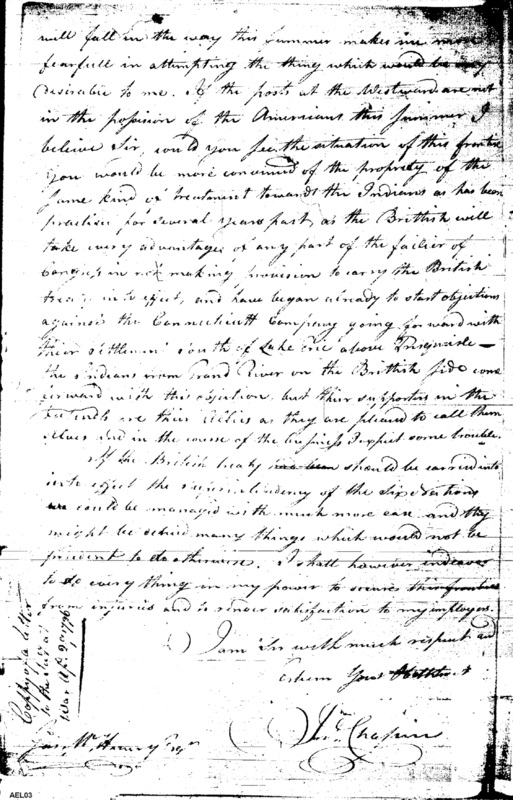 will fall in the way this summer makes me more
fearfull in attempting the thing which would be very
desirable to me. If the posts at the Westward are not
in the possession of the Americans this summer I
believe Sir, could you see the situation of this frontier
you would be more convinced of the propriety of the
same kind of treatment towards the Indians as has been
practised for several years past, as the Brittish will
take every advantage of any part of the failier of
Congress in not making provision to carry the British
treaty into effect, and have began already to start objections
against the Connecticutt Company going forward with
their settlement south of Lake Erie above Presquisle —
the Indians from Grand River on the Brittish side come
forward with this objection but their supporters in the
are their Allies as they are pleased to call them
selves and in the course of the business I expect some trouble.
If the British treaty should be carried into
into effect the superintendency of the six Nations
could be managed with much more ease and they
might be denied many things which would not be
prudent to do otherwise. I shall however indeavor
to do every thing in my power to secure this frontier
from injuries and to render satisfaction to my employers.
I am Sir with much respect and
esteem your
Chapin
Jas. McHenry Esqr.
Coppy of a letter
to the Secy of
War Ap. 1796
AEL03